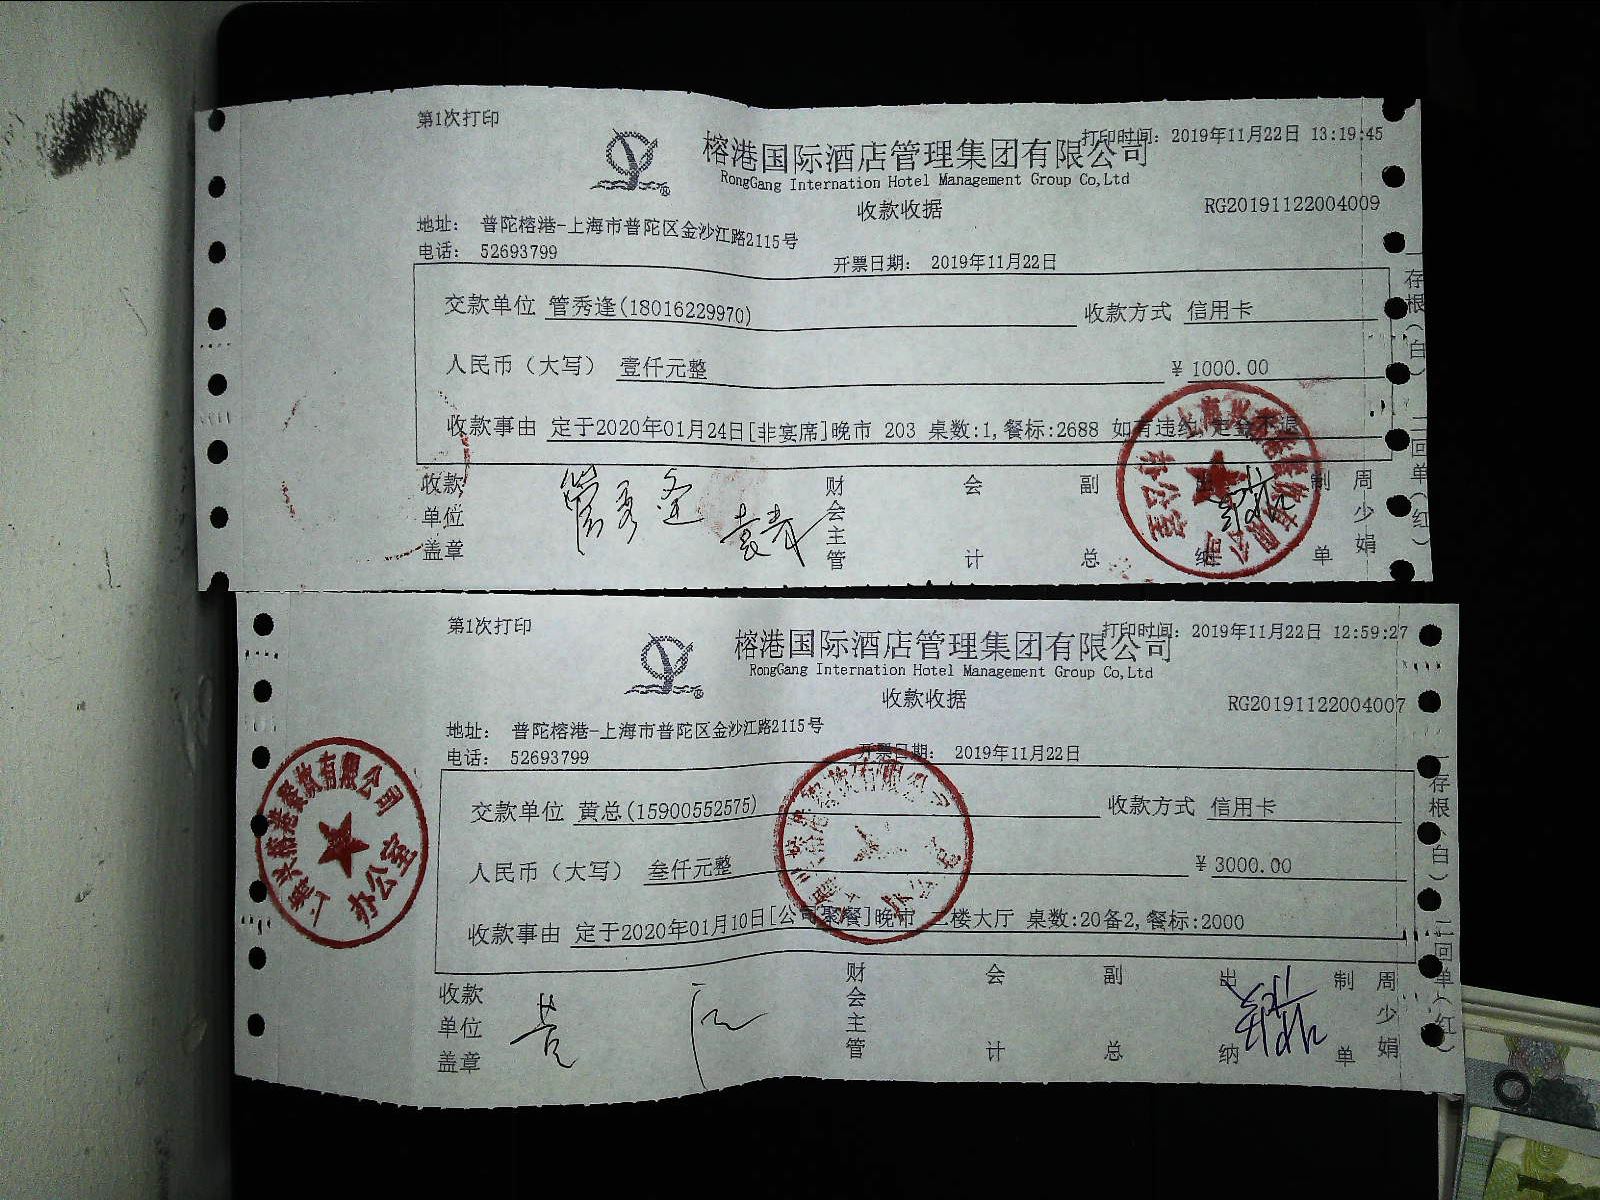 第1次打印
打印时间: 2019年11月22日 13:19:45
榕港国际酒店管理集团有限公司
RongGang Internation Hotel Management Group Co,Ltd
收款收据
RG20191122004009
地址: 普陀榕港-上海市普陀区金沙江路2115号
电话: 52693799
开票日期: 2019年11月22日
交款单位 管秀逢(18016229970) 收款方式 信用卡
人民币(大写) 壹仟元整 ¥ 1000.00
收款事由 定于2020年01月24日[非宴席]晚市 203 桌数:1,餐标:2688 如有违约,定金不退
收款单位盖章 管秀逢 袁青 财会主管 会计 副总 出纳 制单 周少娟
一存根(白) 二回单(红)
办公室
第1次打印
打印时间: 2019年11月22日 12:59:27
榕港国际酒店管理集团有限公司
RongGang Internation Hotel Management Group Co,Ltd
收款收据
RG20191122004007
地址: 普陀榕港-上海市普陀区金沙江路2115号
电话: 52693799
开票日期: 2019年11月22日
交款单位 黄总(15900552575) 收款方式 信用卡
人民币(大写) 叁仟元整 ¥ 3000.00
收款事由 定于2020年01月10日[公司聚餐]晚市 二楼大厅 桌数:20备2,餐标:2000
收款单位盖章 财会主管 会计 副总 出纳 制单 周少娟
一存根(白) 二回单(红)
办公室